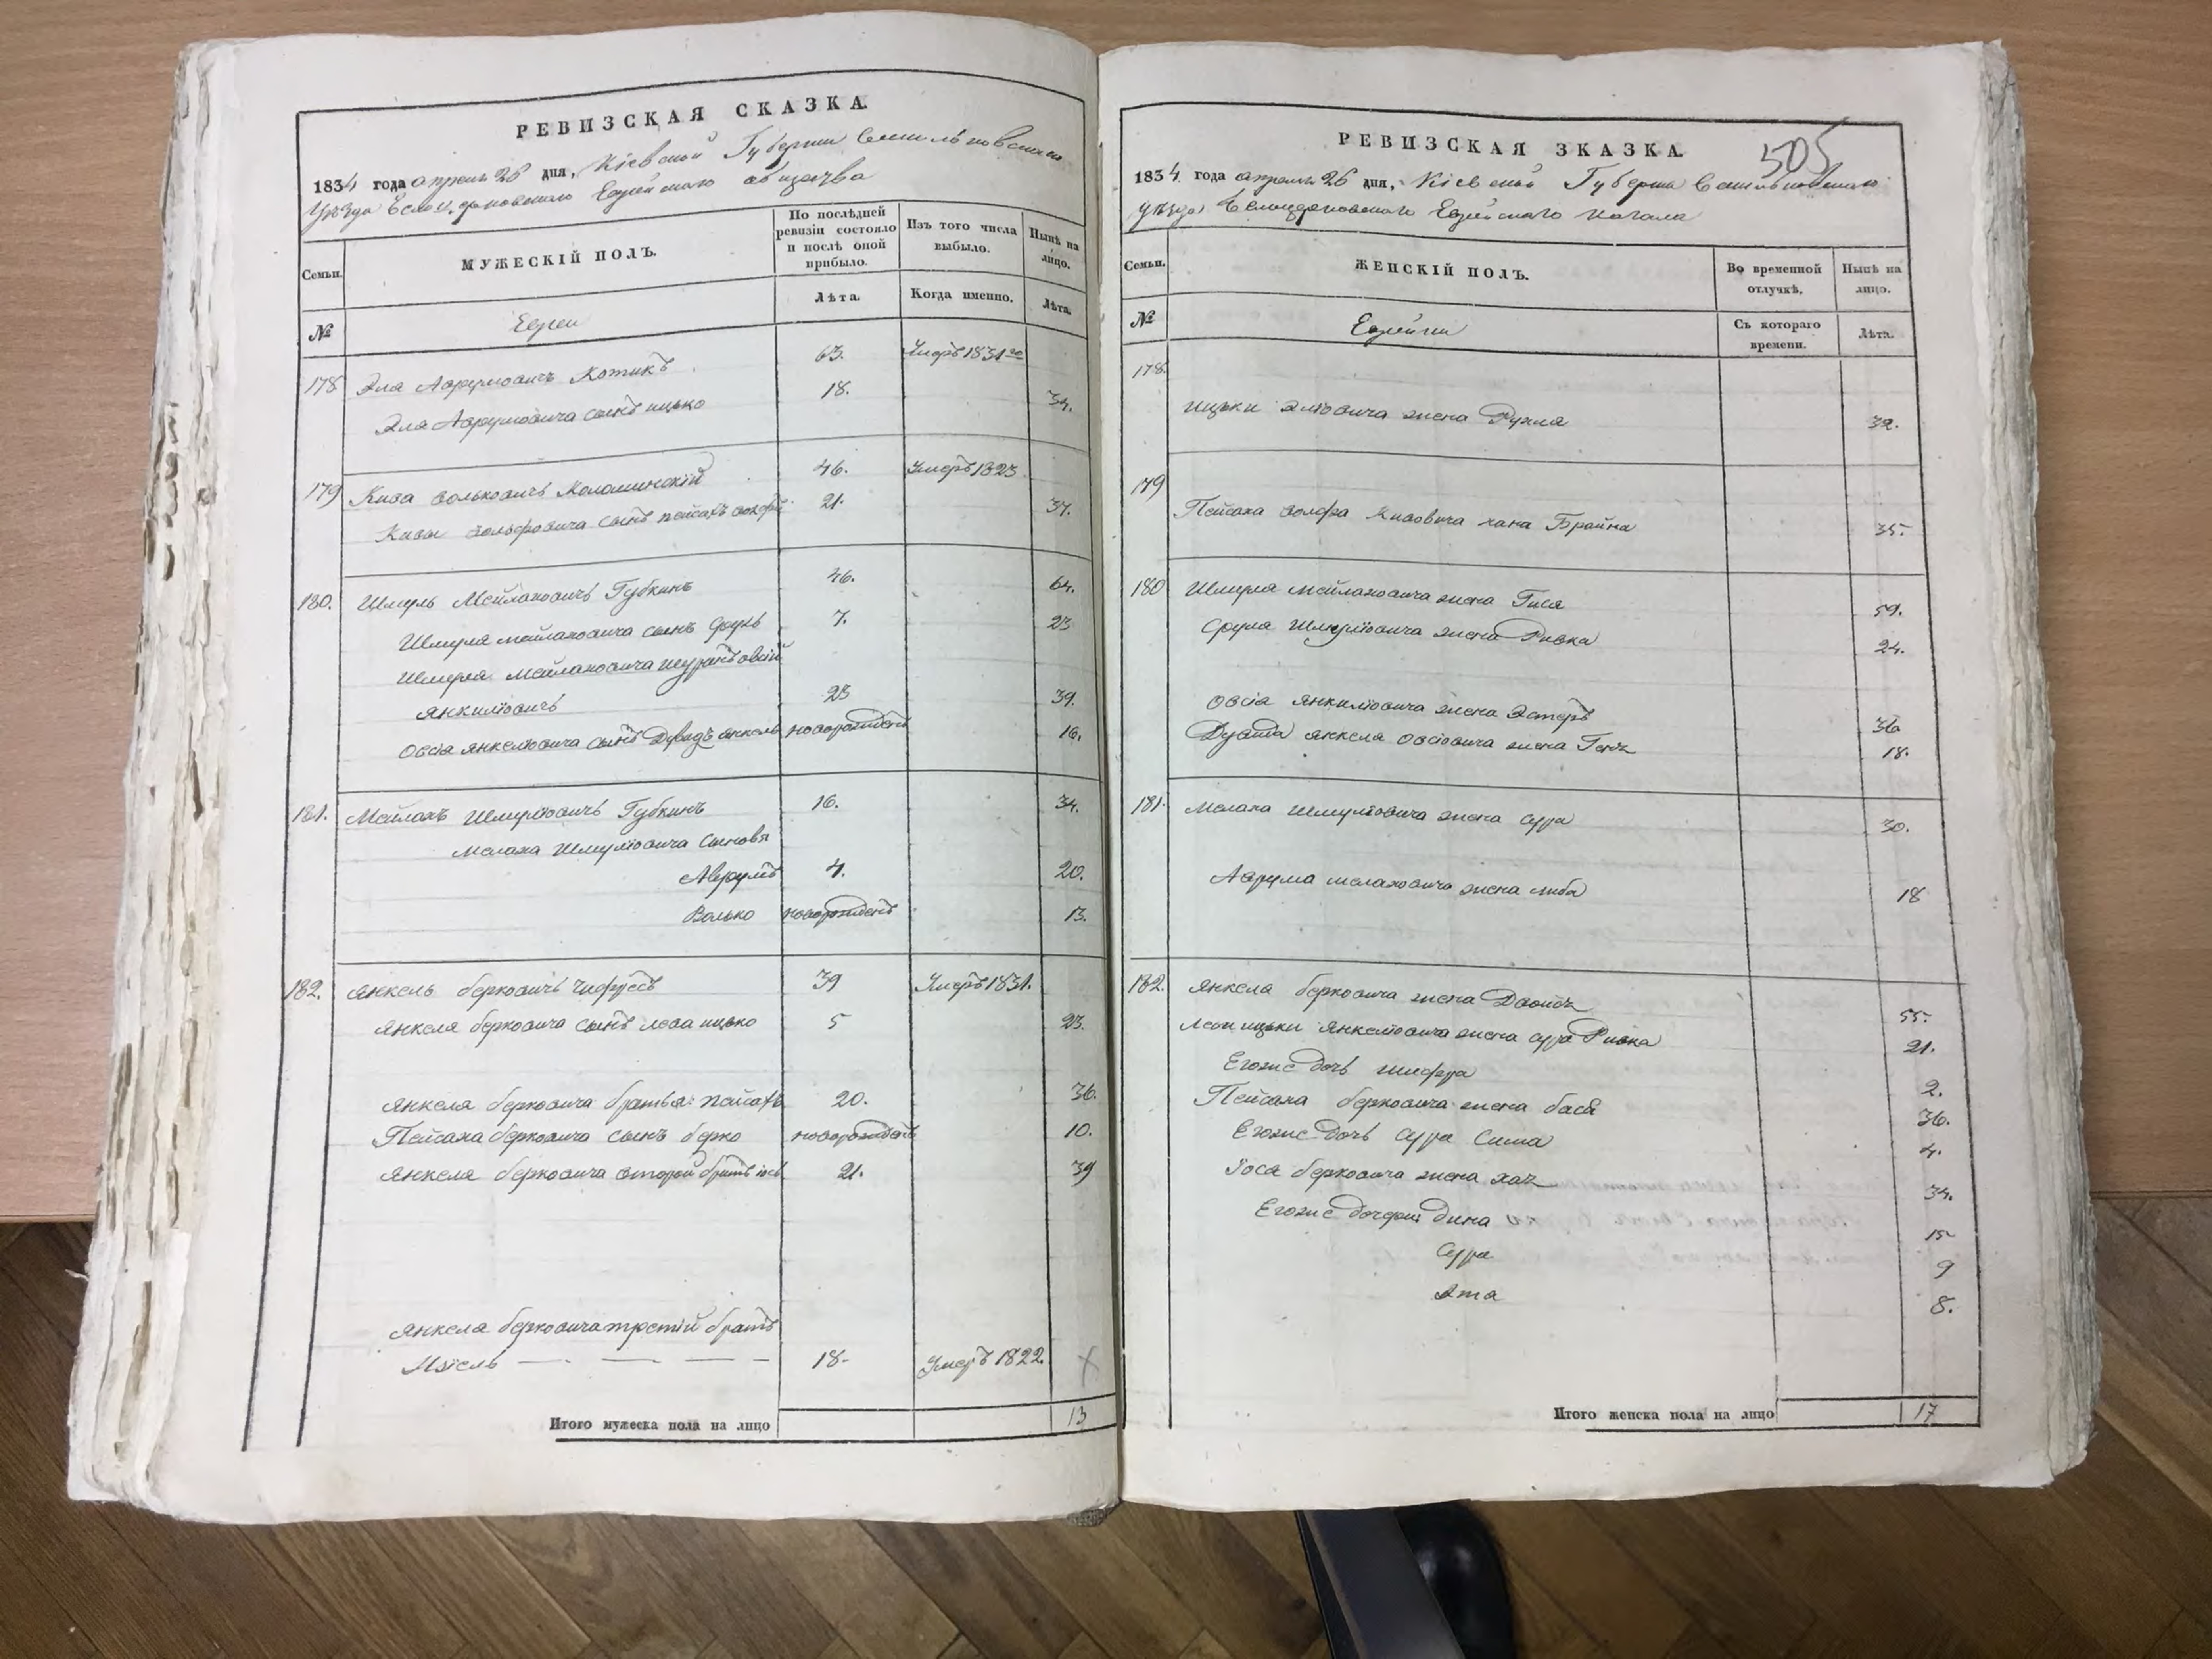 РЕВИЗСКАЯ СКАЗКА.
1834 года апреля 26 дня, Кіевской Губерніи Васильковскаго
Уѣзда Белоцерковскаго Еврейскаго общества
Семьи.
МУЖЕСКІЙ ПОЛЪ.
По послѣдней ревизіи состояло и послѣ оной прибыло.
Изъ того числа выбыло.
Нынѣ на лицо.
Лѣта.
Когда именно.
Лѣта.
№
Евреи
178 Эля Аврумовичъ Котикъ 63. Умеръ 1831го
Эля Аврумовича сынъ ицько 18. 34.
179 Кива волковичъ Коломинскій 46. Умеръ 1823
Кивы вольфовича сынъ пейсахъ 21. 37.
180. Шмуль Мейлаховичъ Губкинъ 46. 64.
Шмуля мейлаховича сынъ сруль 7. 23
Шмуля Мейлаховича шуринъ овсій
янкилiовичъ 23 39.
Овсія янкелiовича сынъ Дувидъ янкель новорожденъ 16.
181. Мейлахъ Шмулiовичъ Губкинъ 16. 34.
Мелаха Шмулiовича сыновя
Аврумъ 4. 20.
Волько новорожденъ 13.
182. янкель берковичъ 39 Умеръ 1831.
янкеля берковича сынъ лейба ицько 5 23.
янкеля берковича братья: пейсахъ 20. 36.
Пейсаха берковича сынъ берко новорожденъ 10.
янкеля берковича второй братъ іось 21. 39
янкеля берковича третій братъ
18- Умеръ 1822. X
Итого мужеска пола на лицо 13
РЕВИЗСКАЯ ЗКАЗКА. 505
1834 года апреля 26 дня, Кіевской Губерніи Васильковскаго
уѣзда Белоцерковскаго Еврейскаго кагала
Семьи.
ЖЕНСКІЙ ПОЛЪ.
Во временной отлучкѣ.
Нынѣ на лицо.
№
Еврейки
Съ котораго времени.
Лѣта.
178.
ицьки элiовича жена Рухля 32.
179
Пейсаха волфа Кивовича хана Брайна 35.
180 Шмуля мейлаховича жена Гися 59.
Сруля Шмулiовича жена Ривка 24.
Овсія янкилiовича жена Эстеръ 36
Дувида янкеля овсiовича жена 18.
181. мелаха шмулiовича жена сура 30.
Аврума мелаховича жена либа 18
182. янкеля берковича жена Двойся 55.
ицьки янкелiовича жена сура Ривка 21.
Егоже дочь шифра 2.
Пейсаха берковича жена бася 36.
Егоже дочь Сура Сима 4.
Iося берковича жена хая 34.
Егоже дочери: дина 15
Сура 9
Эта 8.
Итого женска пола на лицо 17